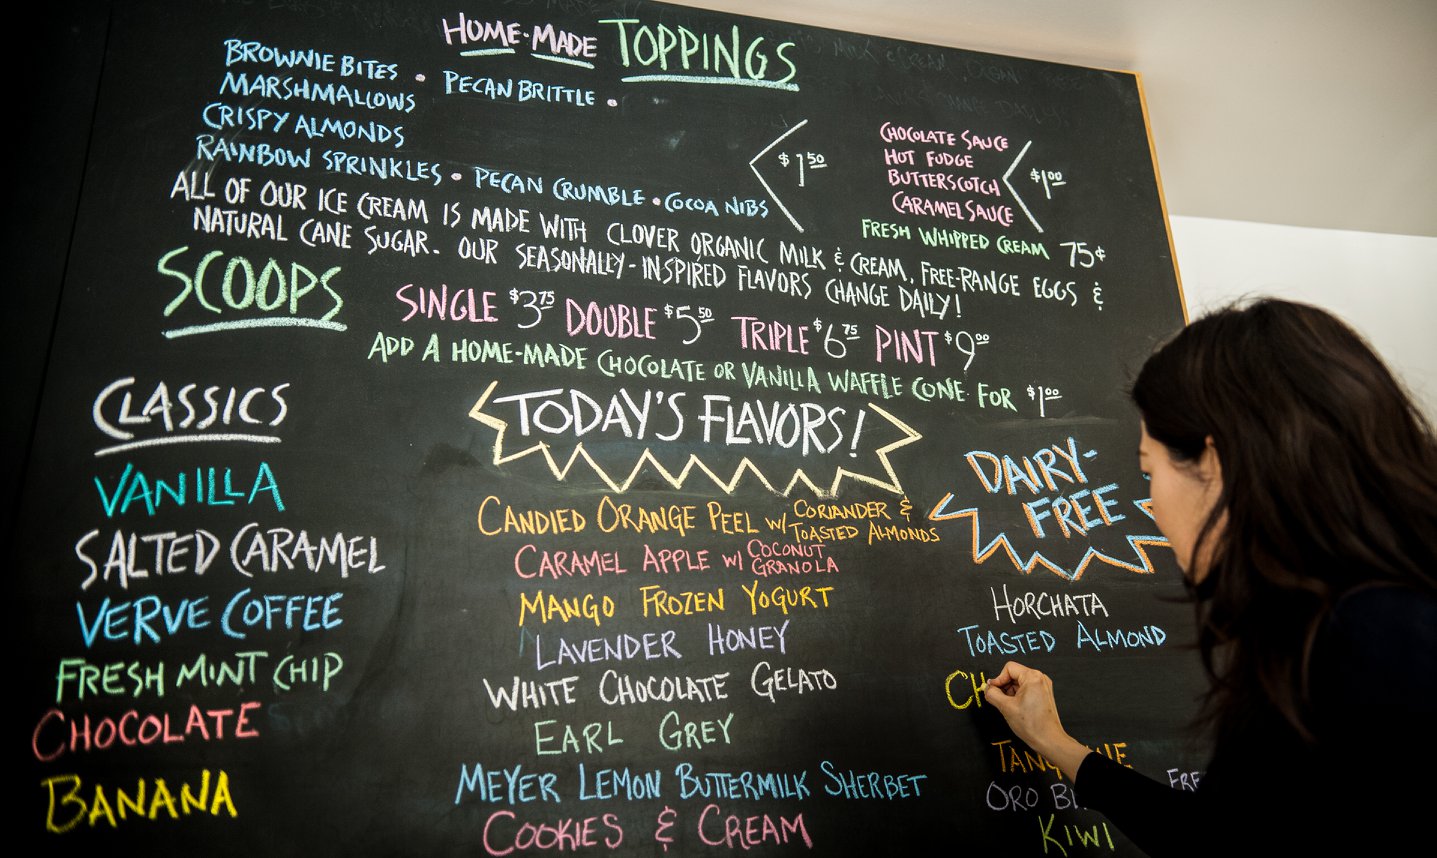 HOME-MADE TOPPINGS
BROWNIE BITES •
MARSHMALLOWS
PECAN BRITTLE •
CRISPY ALMONDS
RAINBOW SPRINKLES • PECAN CRUMBLE • COCOA NIBS
$1.50
CHOCOLATE SAUCE
HOT FUDGE
BUTTERSCOTCH
CARAMEL SAUCE
$1.00
FRESH WHIPPED CREAM 75¢
ALL OF OUR ICE CREAM IS MADE WITH CLOVER ORGANIC MILK & CREAM, FREE-RANGE EGGS &
NATURAL CANE SUGAR. OUR SEASONALLY-INSPIRED FLAVORS CHANGE DAILY!
SCOOPS
SINGLE $3.75 DOUBLE $5.50 TRIPLE $6.75 PINT $9.00
ADD A HOME-MADE CHOCOLATE OR VANILLA WAFFLE CONE FOR $1.00
CLASSICS
VANILLA
SALTED CARAMEL
VERVE COFFEE
FRESH MINT CHIP
CHOCOLATE
BANANA
TODAY'S FLAVORS!
CANDIED ORANGE PEEL W/ CORIANDER &
TOASTED ALMONDS
CARAMEL APPLE W/ COCONUT
GRANOLA
MANGO FROZEN YOGURT
LAVENDER HONEY
WHITE CHOCOLATE GELATO
EARL GREY
MEYER LEMON BUTTERMILK SHERBET
COOKIES & CREAM
DAIRY-
FREE
HORCHATA
TOASTED ALMOND
CH
ORO
KIWI